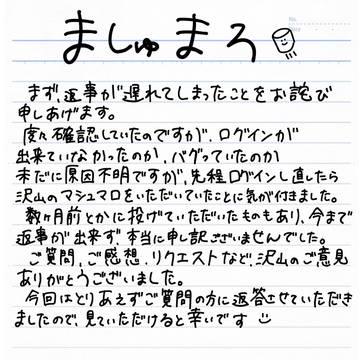 ましゅまろ
No.
まず、返事が遅れてしまったことをお詫び
申しあげます。
度々確認していたのですが、ログインが
出来ていなかったのか、バグっていたのか
未だに原因不明ですが、先程ログインし直したら
沢山のマシュマロをいただいていたことに気が付きました。
数ヶ月前とかに投げていただいたものもあり、今まで
返事が出来ず、本当に申し訳ございませんでした。
ご質問、ご感想、リクエストなど、沢山のご意見
ありがとうございました。
今回はとりあえずご質問の方に返答させていただき
ましたので、見ていただけると幸いです